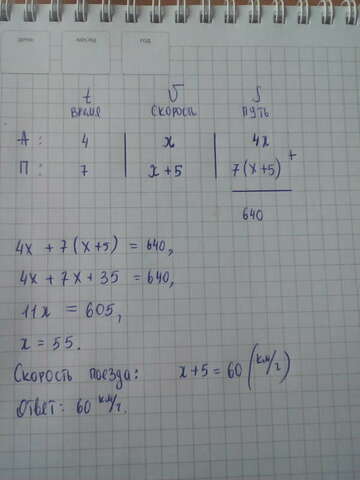 число месяц год
t V S
время скорость путь
А: 4 x 4x
П: 7 x+5 7(x+5) +
640
4x + 7(x+5) = 640,
4x + 7x + 35 = 640,
11x = 605,
x = 55.
Скорость поезда: x+5 = 60 (км/ч)
Ответ: 60 км/ч.